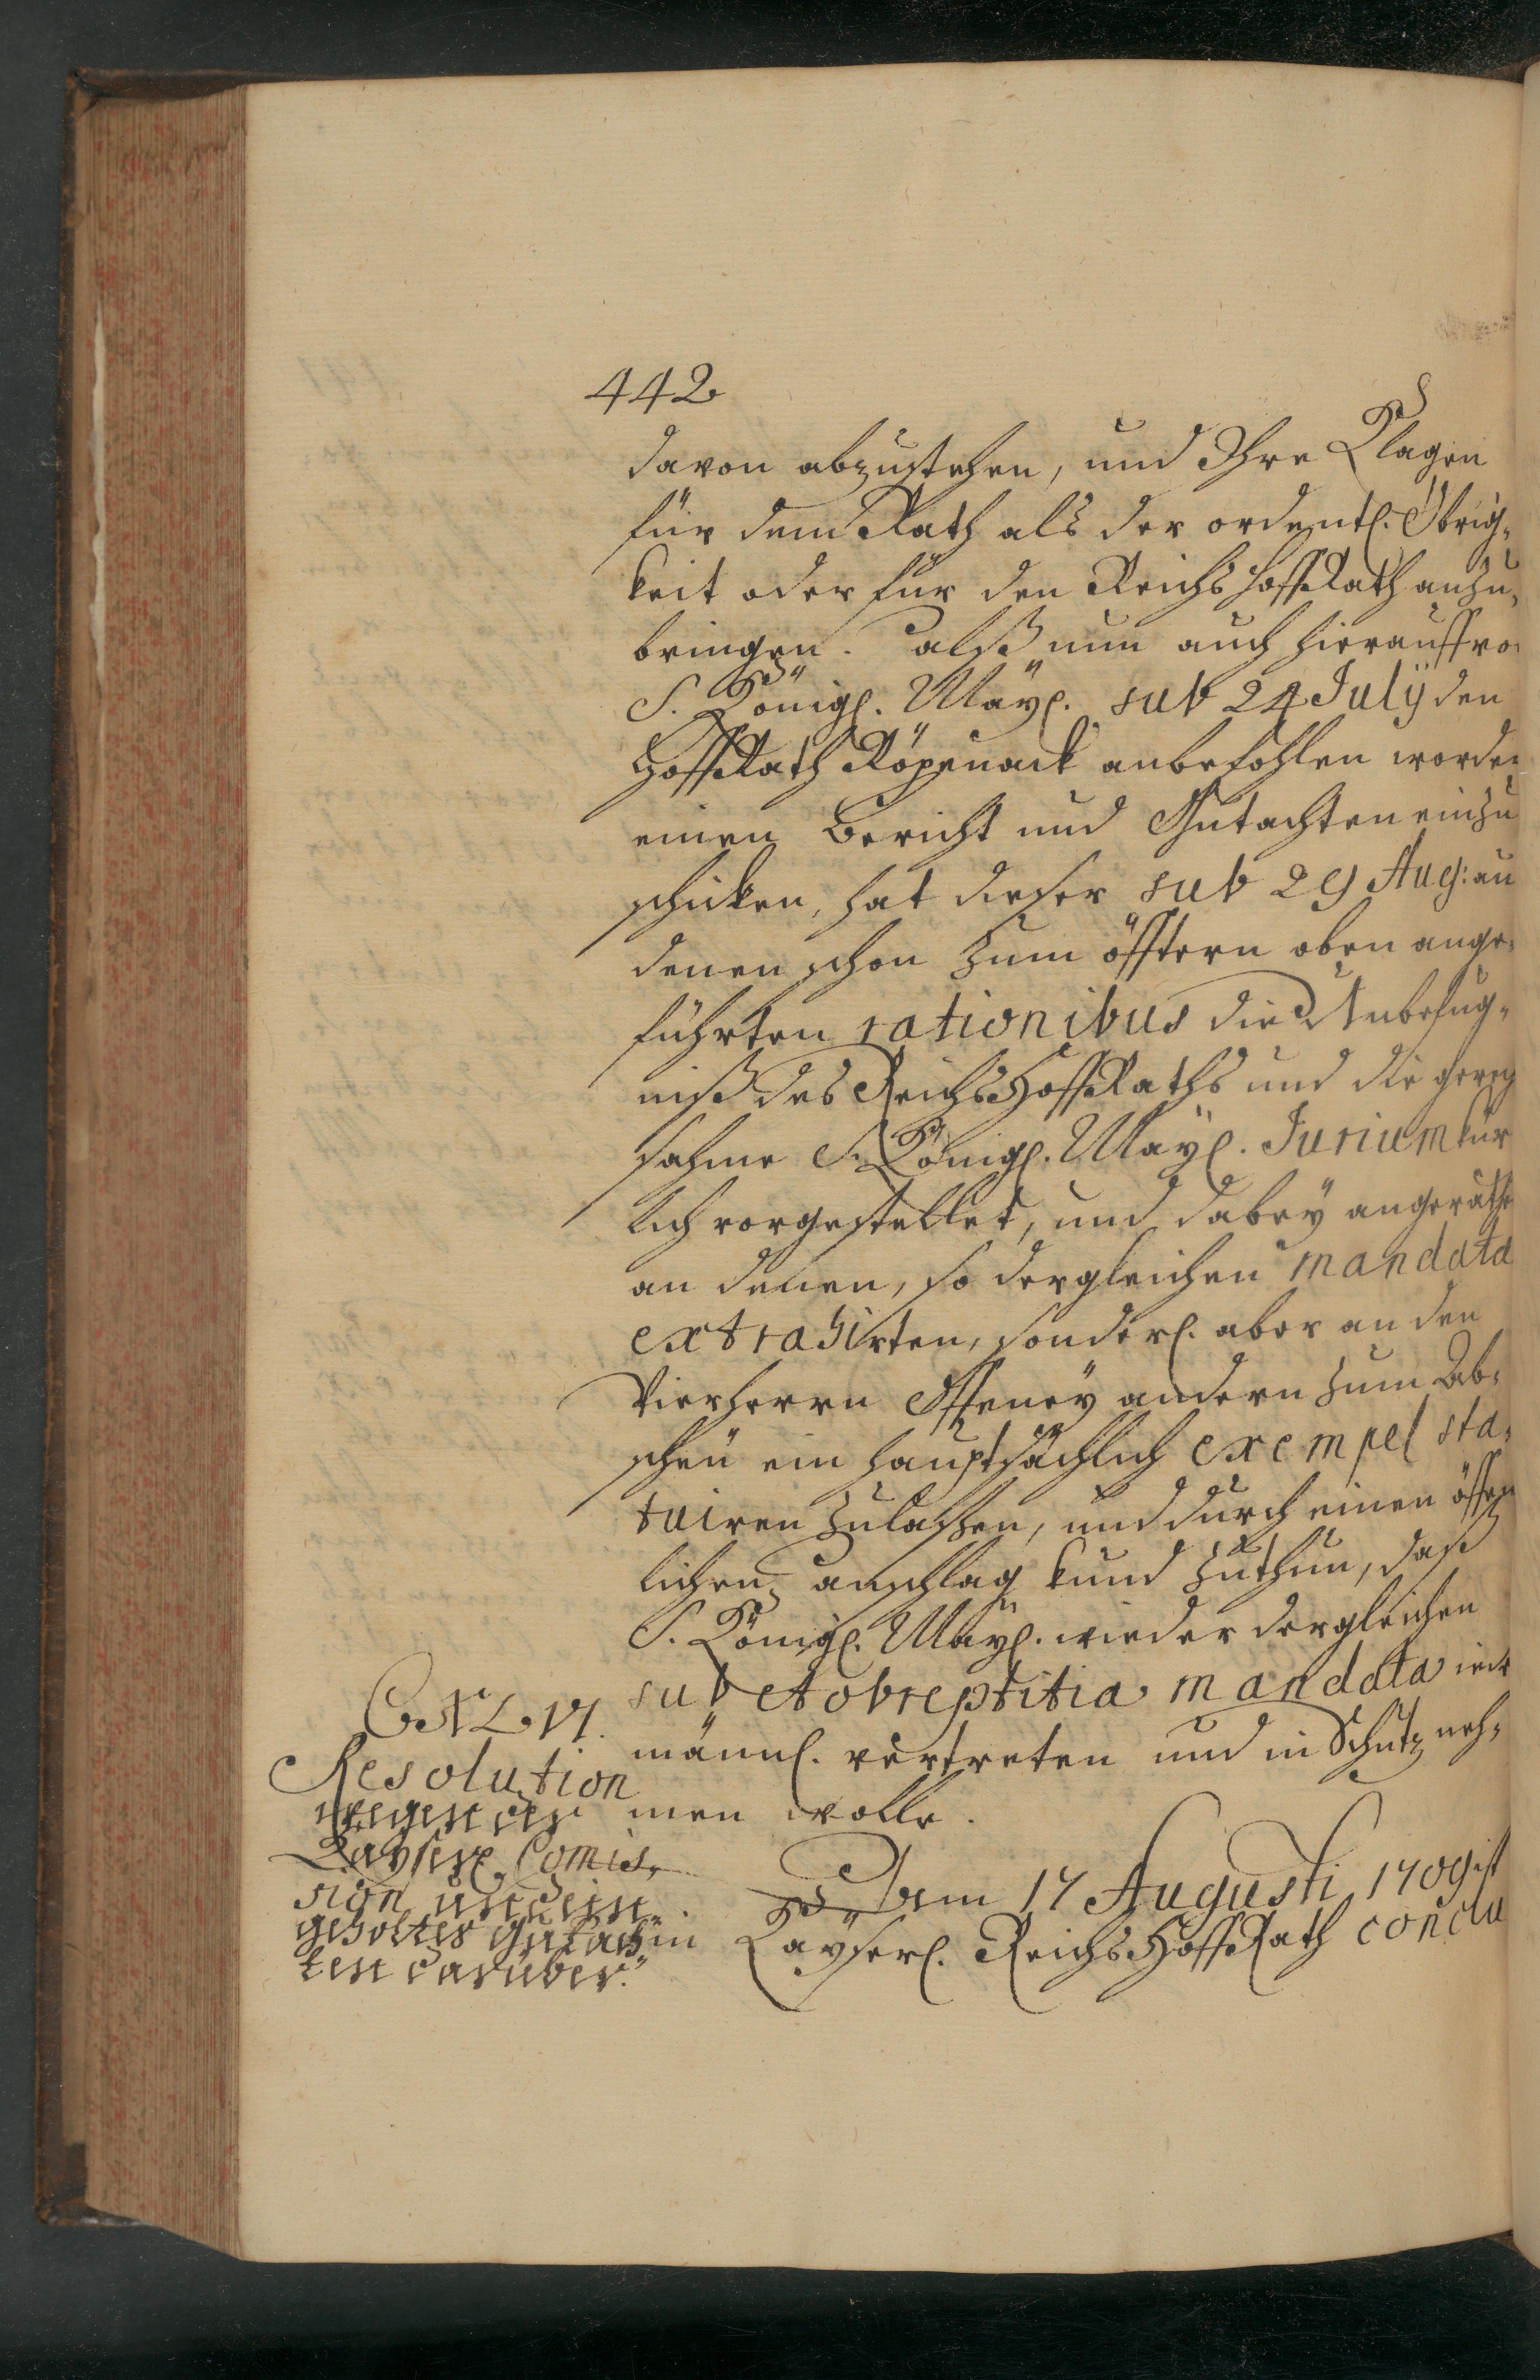 442
davon abzustehen, und Ihre Klagen
für dem Rath als der ordentl. Obrig-
keit oder für den Reichs Hoff Rath anzu-
bringen. alß nun auch hierauff vo
S. Königl. Mayl. sub 24 Julÿ den
Hoff Rath Röpenack anbefohlen worden
einen Bericht und Gutachten einzu
schicken, hat dieser sub 29 Aug: au
denen schon zum öfftern oben ange-
führten rationibus die Unbefug-
niß des Reichs Hoff Raths und die gerecht
sahme S. Königl. Mayl. Jurium kür
lich vorgestellet, und dabeÿ angerathe
an denen, so dergleichen mandata
extrahirten, sonderl. aber an den
Vierherrn Offeneÿ andern zum Ab-
scheü ein hauptsächlich exempel sta-
tuiren zulaßen, und durch einen öffen
lichen anschlag kund zuthun, daß
S. Königl. Mayl. wieder dergleichen
sub et obreptitia mandata ied
männl. vertreten und in Schutz neh-
men wolle.
CXLVI.
Resolution
wegen der
Kayserl. Comis-
sion und ein-
geholtes Gutach-
ten darüber.
Dem 17 Augusti 1709 ist
im Kayserl. Reichs Hoff Rath conclu